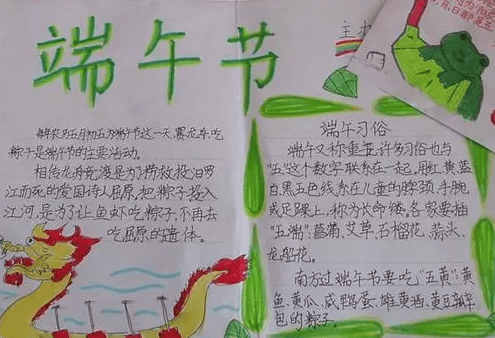 端午节
每年农历五月初五为端午节这一天,赛龙舟,吃
粽子是端午节的主要活动。
相传龙舟竞渡是为了捞救投汨罗
江而死的爱国诗人屈原,把粽子投入
江河,是为了让鱼虾吃粽子,不再去
吃屈原的遗体。
端午习俗
端午又称重五,许多习俗也与
"五"这个数字联系在一起。用红、黄、蓝
白黑五色线系在儿童的脖颈、手腕,
或足踝上,称为长命缕。各家要插
"五端":菖蒲、艾草、石榴花、蒜头、
龙船花。
南方过端午节要吃"五黄":黄
鱼、黄瓜、咸鸭蛋、雄黄酒、黄豆瓣
包的粽子。